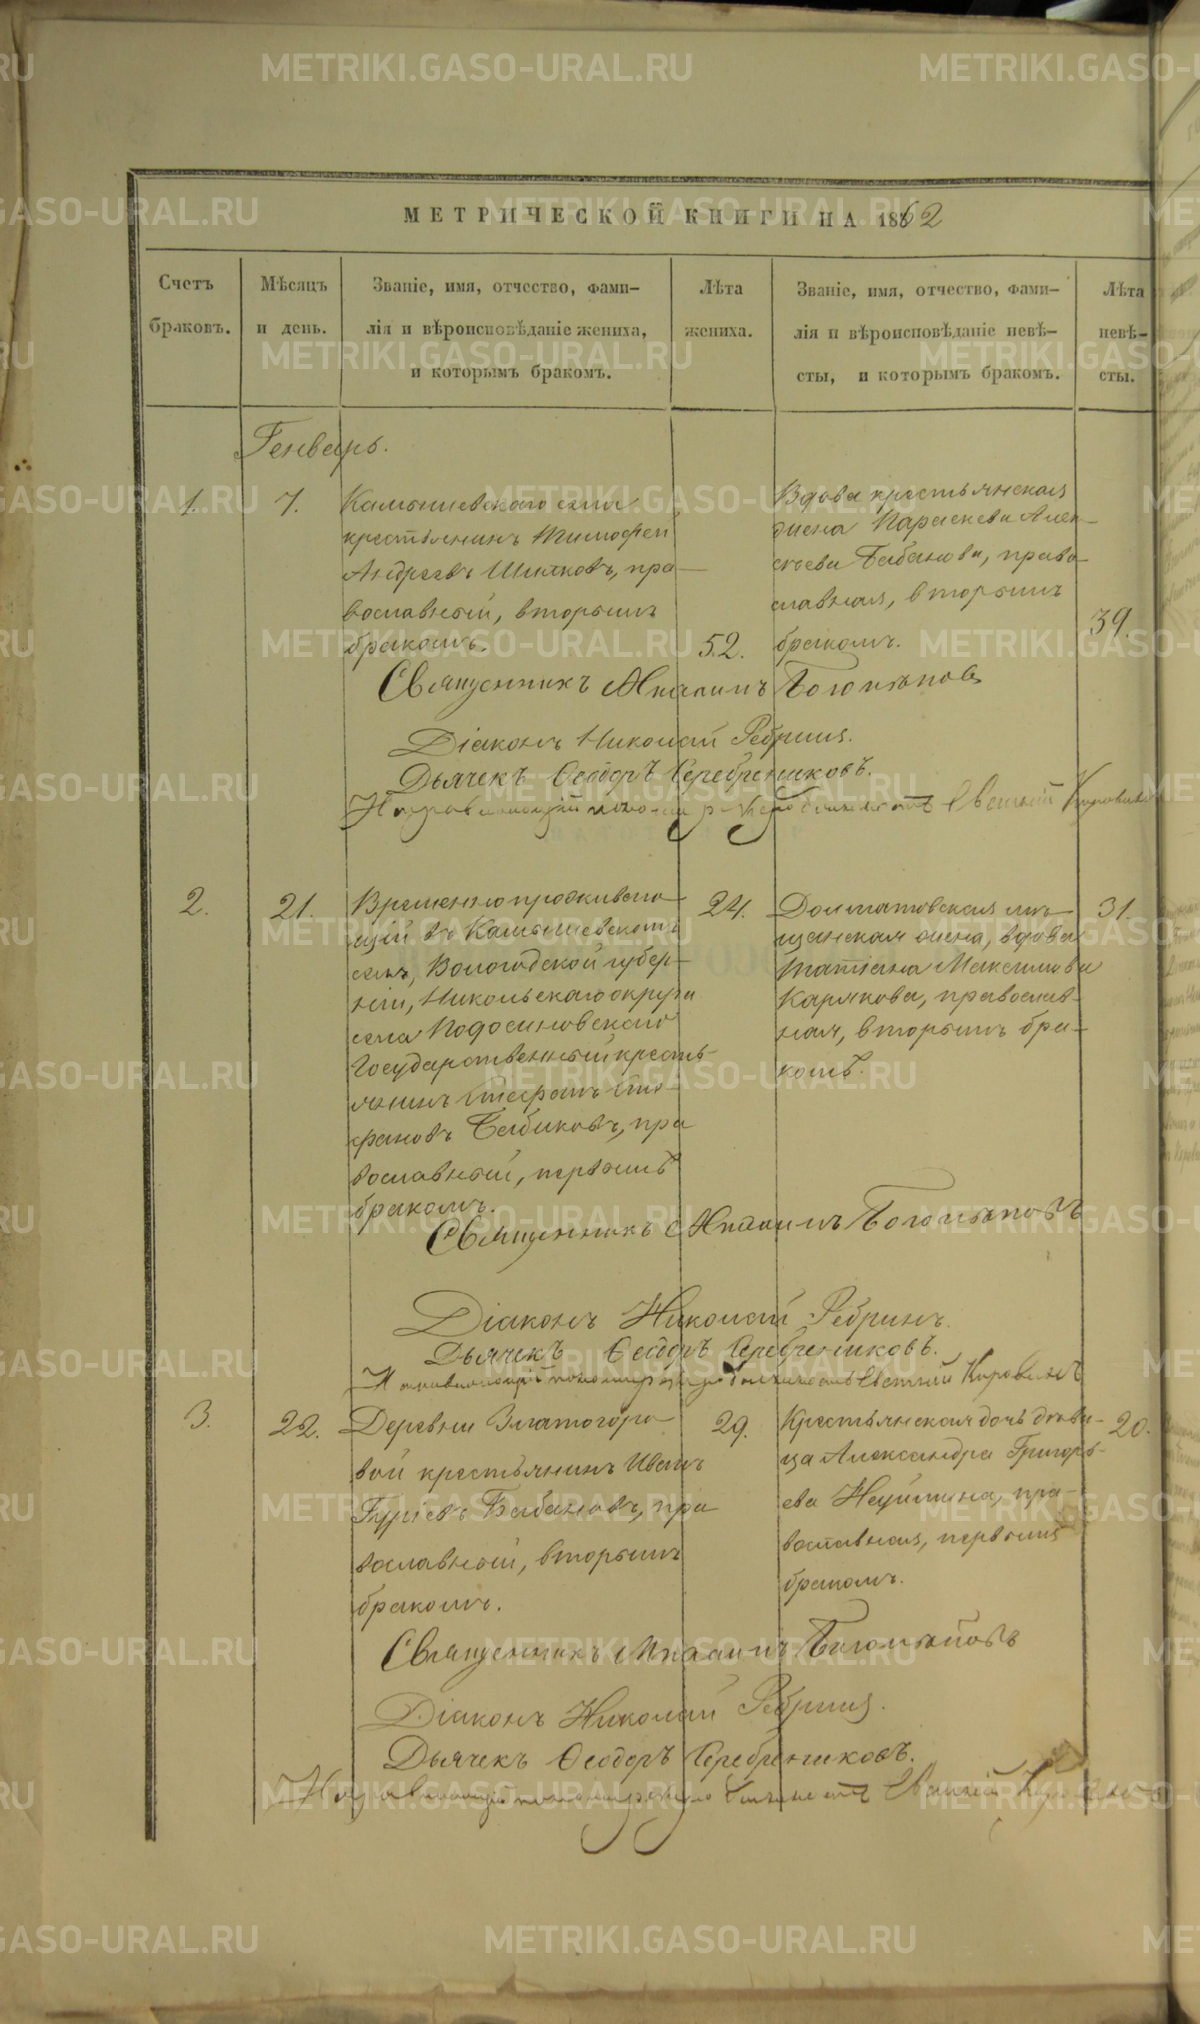 МЕТРИЧЕСКОЙ КНИГИ НА 1862
Счетъ
браковъ.
Мѣсяцъ
и день.
Званіе, имя, отчество, фами-
лія и вѣроисповѣданіе жениха,
и которымъ бракомъ.
Лѣта
жениха.
Званіе, имя, отчество, фами-
лія и вѣроисповѣданіе невѣ-
сты, и которымъ бракомъ.
Лѣта
невѣ-
сты.
Генварь.
1.
7.
Камышевскаго села
крестьянинъ Тимофей
Андреевъ, пра-
вославный, вторымъ
бракомъ.
52.
Вдова крестьянская
жена Параскева Алек-
сѣева Бабанова, право-
славная, вторымъ
бракомъ.
39.
Священникъ Михаилъ Богомоловъ
Діаконъ Николай Ребринъ.
Дьячекъ Ѳеодоръ Серебрениковъ.
должность Коровинъ
2.
21.
Временно проживаю-
щій въ Камышевскомъ
селѣ, Вологодской губер-
ніи, Никольскаго округа
села Подосиновскаго
Государственный кресть-
янинъ Стефанъ Сте-
фановъ Бабиковъ, пра
вославный, первымъ
бракомъ.
24.
Долматовская мѣ-
щанская жена, вдова
Татіана Максимова
Карякова, православ-
ная, вторымъ бра-
комъ.
31.
Священникъ Михаилъ Богомоловъ
Діаконъ Николай Ребринъ.
Дьячекъ Ѳеодоръ Серебрениковъ.
должность Коровинъ
3.
22.
Деревни Златогоро-
вой крестьянинъ Иванъ
Гуріевъ Бабановъ, пра
вославный, вторымъ
бракомъ.
29.
Крестьянская дочь дѣви-
ца Александра Григорь-
ева Неуймина, пра-
вославная, первымъ
бракомъ.
20.
Священникъ Михаилъ Богомоловъ
Діаконъ Николай Ребринъ.
Дьячекъ Ѳеодоръ Серебрениковъ.
METRIKI.GASO-URAL.RU